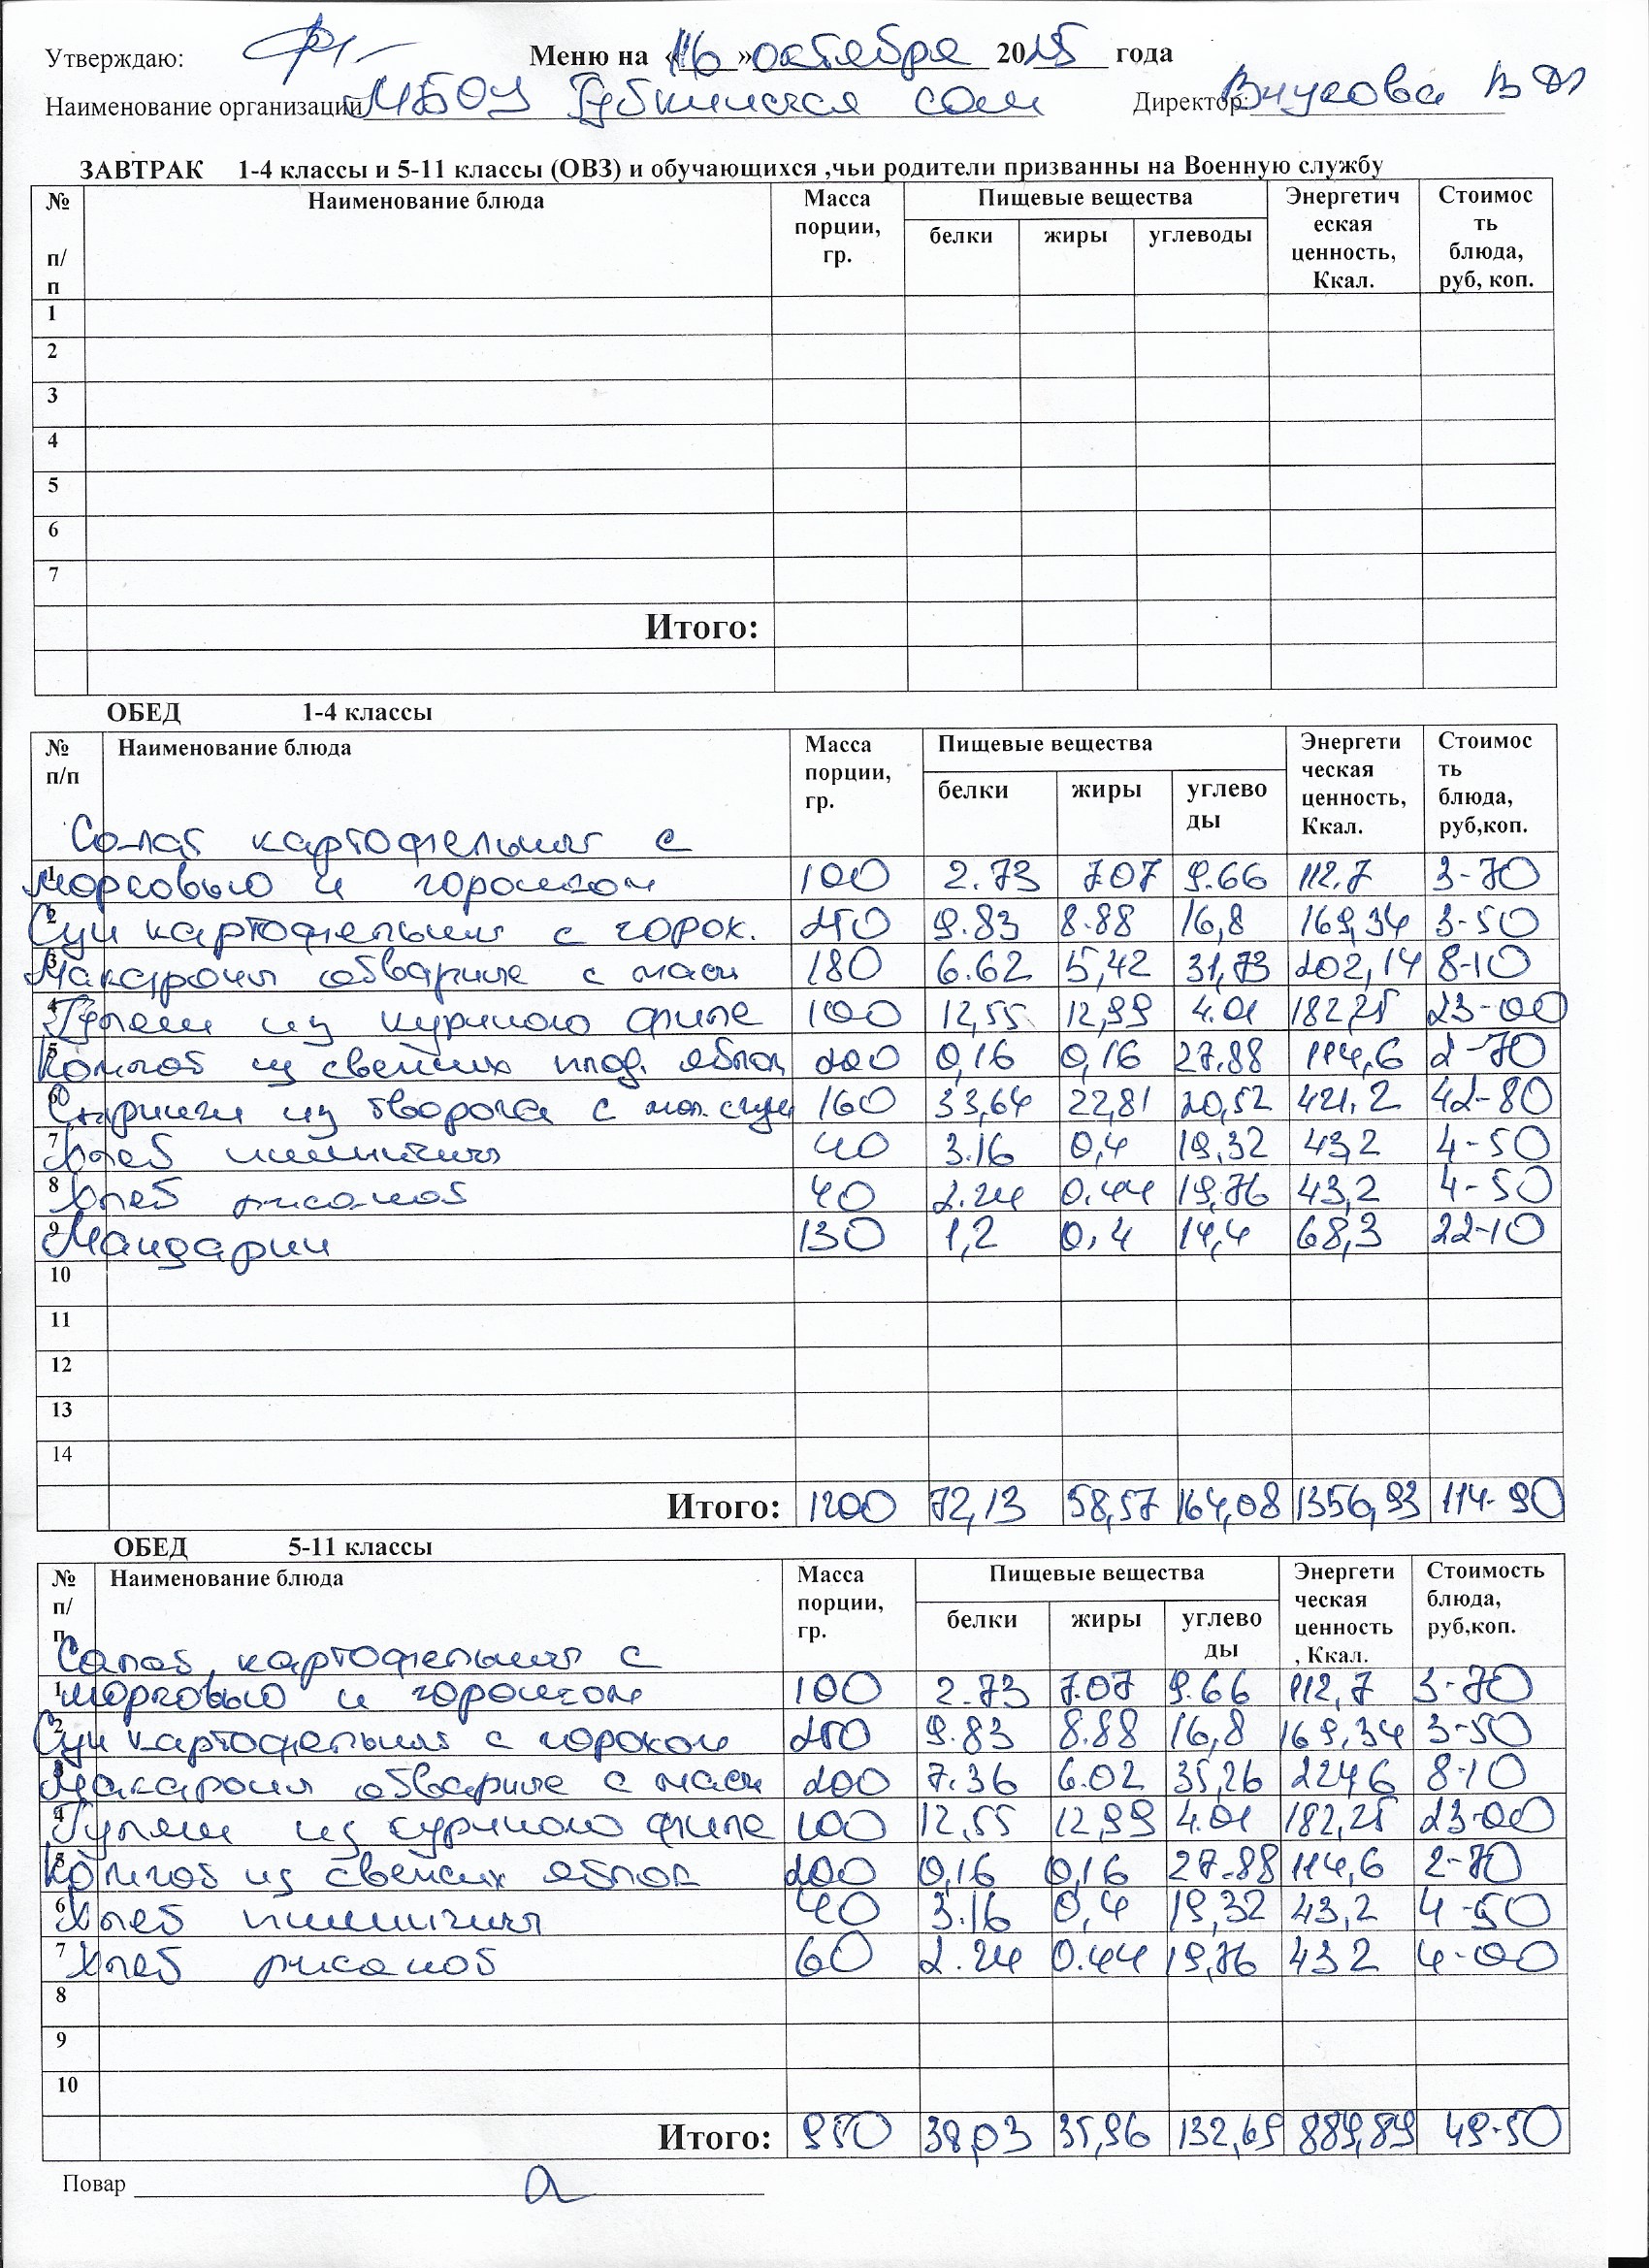 Утверждаю: Меню на «16» октября 2025 года
Наименование организации МБОУ Губкинская сош Директор: Внукова В
ЗАВТРАК 1-4 классы и 5-11 классы (ОВЗ) и обучающихся ,чьи родители призванны на Военную службу
№ п/п Наименование блюда Масса порции, гр. Пищевые вещества белки жиры углеводы Энергетическая ценность, Ккал. Стоимость блюда, руб, коп.
1
2
3
4
5
6
7
Итого:
ОБЕД 1-4 классы
№ п/п Наименование блюда Масса порции, гр. Пищевые вещества белки жиры углеводы Энергетическая ценность, Ккал. Стоимость блюда, руб,коп.
Салат картофельный с
1 морковью и горошком 100 2.73 7.07 9.66 112.7 3-70
2 Суп картофельный с горох. 250 9.83 8.88 16,8 169,34 3-50
3 Макароны отварные с масл 180 6.62 5,42 31,73 202,14 8-10
4 Гуляш из куриного филе 100 12,55 12,99 4.01 182,25 23-00
5 Компот из свежих плод. яблок 200 0,16 0,16 27.88 114,6 2-70
6 из творога с мол. сгущ 160 33,64 22,81 20,52 421.2 42-80
7 Хлеб пшеничн 40 3.16 0,4 19,32 43,2 4-50
8 Хлеб ржаной 40 2.24 0.44 19,76 43,2 4-50
9 Мандарин 130 1,2 0,4 14,4 68,3 22-10
10
11
12
13
14
Итого: 1200 72,13 58,57 164,08 1356,93 114-90
ОБЕД 5-11 классы
№ п/п Наименование блюда Масса порции, гр. Пищевые вещества белки жиры углеводы Энергетическая ценность, Ккал. Стоимость блюда, руб,коп.
Салат картофельный с
1 морковью и горошком 100 2.73 7.07 9.66 112,7 3-70
2 Суп картофельный с горохом 250 9.83 8.88 16,8 169,34 3-50
3 Макароны отварные с масл 200 7.36 6.02 35,26 224,6 8-10
4 Гуляш из куриного филе 100 12,55 12,99 4.01 182,25 23-00
5 Компот из свежих яблок 200 0,16 0,16 27.88 114,6 2-70
6 Хлеб пшеничн 40 3.16 0,4 19,32 43,2 4-50
7 Хлеб ржаной 60 2.24 0.44 19,76 43 2 4-00
8
9
10
Итого: 950 38,03 35,96 132,69 889,89 49-50
Повар